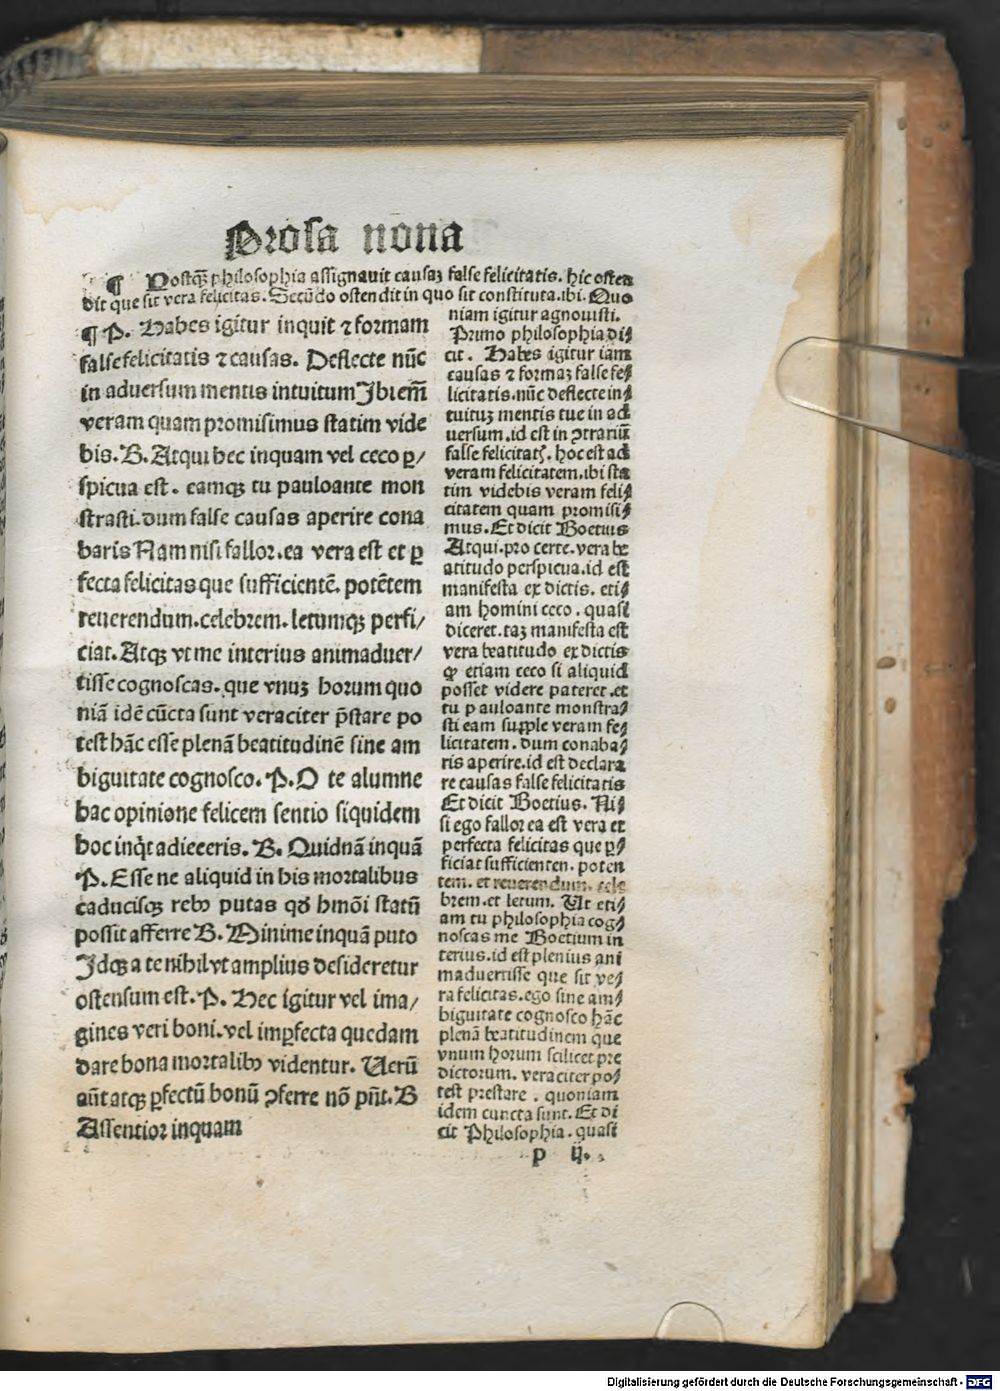 Prosa nona
¶ Postqȝ philosophia assignauit causaȝ false felicitatis. hic osten
dit que sit vera felicitas. Secūdo ostendit in quo sit constituta.ibi. Quo
niam igitur agnouisti.
¶ P. Habes igitur inquit ⁊ formam
false felicitatis ⁊ causas. Deflecte nūc
in aduersum mentis intuitum Jbi em̄
veram quam promisimus statim vide
bis. B. Atqui hec inquam vel ceco ꝑ/
spicua est. eamqȝ tu pauloante mon
strasti.dum false causas aperire cona
baris Nam nisi fallor.ea vera est et ꝑ
fecta felicitas que sufficientē. potētem
reuerendum.celebrem.letumqȝ perfi/
ciat. Atqȝ vt me interius animaduer/
tisse cognoscas. que vnuȝ horum quo
niā idē cūcta sunt veraciter p̄stare po
test hāc esse plenā beatitudinē sine am
biguitate cognosco. P. O te alumne
hac opinione felicem sentio siquidem
hoc inq̇t adieceris. B. Quidnā inquā
P. Esse ne aliquid in his mortalibus
caducisqȝ rebꝰ putas qđ hmōi statū
possit afferre B. Minime inquā puto
Jdqȝ a te nihil vt amplius desideretur
ostensum est. P. Hec igitur vel ima/
gines veri boni. vel imꝑfecta quedam
dare bona mortalibꝰ videntur. Uerū
aūt atqȝ ꝑfectū bonū ꝯferre nō pn̄t. B
Assentior inquam
Primo philosophia di/
cit. Habes igitur iam
causas ⁊ formaȝ false fe/
licitatis.nūc deflecte in/
tuituȝ mentis tue in ad
uersum.id est in ꝯtrariū
false felicitatꝭ. hoc est ad
veram felicitatem.ibi sta
tim videbis veram feli/
citatem quam promisi/
mus. Et dicit Boetius
Atqui.pro certe.vera be
atitudo perspicua.id est
manifesta ex dictis. eti/
am homini ceco. quasi
diceret.taȝ manifesta est
vera beatitudo ex dictis
ꝙ etiam ceco si aliquid
posset videre pateret.et
tu pauloante monstra/
sti eam supple veram fe/
licitatem. dum conaba/
ris aperire.id est declara
re causas false felicitatis
Et dicit Boetius. Ni/
si ego fallor ea est vera et
perfecta felicitas que ꝑ/
ficiat sufficienten. poten
tem. et reuerendum. cele
brem.et letum. Ut eti/
am tu philosophia cog/
noscas me Boetium in
terius.id est plenius ani
maduertisse que sit ve/
ra felicitas.ego sine am/
biguitate cognosco hāc
plenā beatitudinem que
vnum horum scilicet pre
dictorum. veraciter po/
test prestare . quoniam
idem cuncta sunt. Et di
cit Philosophia. quasi
p ij.
Digitalisierung gefördert durch die Deutsche Forschungsgemeinschaft - DFG